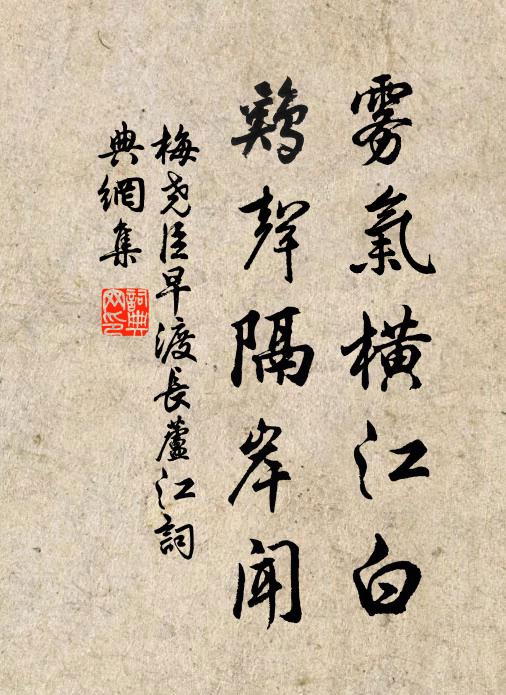 雾氣橫江白
鷄聲隔岸聞
梅堯臣早渡長蘆江詞
典網集
詞典
网印